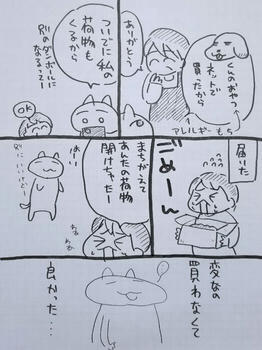 くんのおやつ
ネットで
買ったから
アレルギーもち
ありがとう
ついでに私の
荷物も
くるから
別のダンボールに
なるってー
OK
届いた
ごめーん
まちがえて
あんたの荷物
開けちゃたー
わる
わる
おーい
別にいいけどー
変なの
買わなくて
良かった…